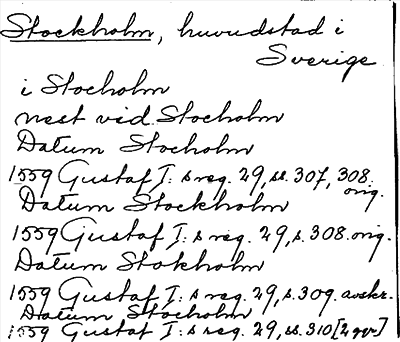 Stockholm, huvudstad i
Sverige
i Stocholm
nest vid Stocholm
Datum Stocholm
1559 Gustaf I:s reg. 29, ss. 307, 308.
orig.
Datum Stockholm
1559 Gustaf I:s reg. 29, s. 308. orig.
Datum Stokholm
1559 Gustaf I:s reg. 29, s. 309. avskr.
Datum Stocholm
1559 Gustaf I:s reg. 29, ss. 310 [2 ggr]